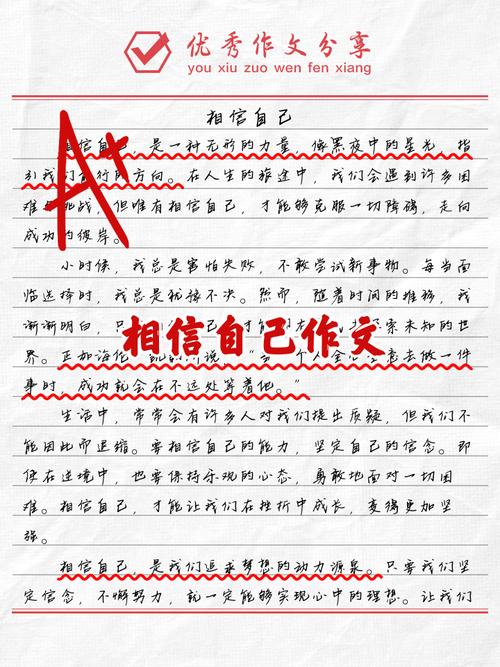 优秀作文分享
you xiu zuo wen fen xiang
相信自己
相信自己，是一种无形的力量，像黑夜中的星光，指
引我们前行的方向。在人生的旅途中，我们会遇到许多困
难与挑战，但唯有相信自己，才能够克服一切障碍，走向
成功的彼岸。
小时候，我总是害怕失败，不敢尝试新事物。每当面
临选择时，我总是犹豫不决。然而，随着时间的推移，我
渐渐明白，只
索未知的世
相信自己作文
界。正如海伦
说
去做一件
事时，成功就会在不远处等着他。”
生活中，常常会有许多人对我们提出质疑，但我们不
能因此而退缩。要相信自己的能力，坚定自己的信念。即
使在逆境中，也要保持乐观的心态，勇敢地面对一切困
难。相信自己，才能让我们在挫折中成长，变得更加坚
强。
相信自己，是我们追求梦想的动力源泉。只要我们坚
定信念，不懈努力，就一定能够实现心中的理想。让我们
A+